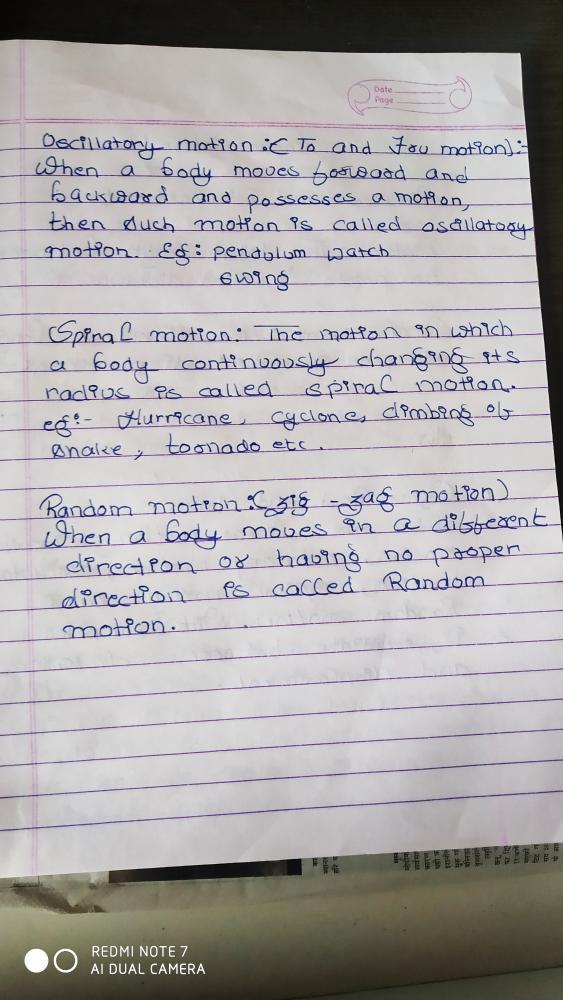 Date
Page
Oscillatory motion :( To and Fro motion):-
When a body moves forward and
backward and possesses a motion,
then such motion is called oscillatory
motion. Eg: pendulum watch
swing
Spiral motion: The motion in which
a body continuously changing its
radius is called spiral motion.
eg:- Hurricane, cyclone, climbing of
snake, tornado etc.
Random motion:( zig - zag motion)
When a body moves in a different
direction or having no proper
direction is called Random
motion.
REDMI NOTE 7
AI DUAL CAMERA